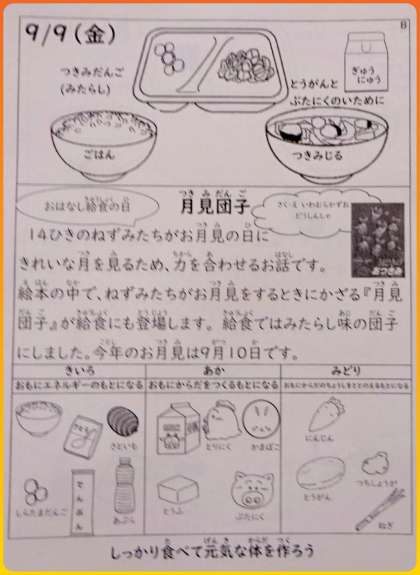 9/9(金)
B
つきみだんご
(みたらし)
ぎゅう
にゅう
とうがんと
ぶたにくのいために
ごはん
つきみじる
おはなし給食の日
月見団子
さく・え いわむらかずお
どうしんしゃ
14ひきのねずみたちがお月見の日に
きれいな月を見るため、力を合わせるお話です。
おつきみ
絵本の中で、ねずみたちがお月見をするときにかざる『月見
団子』が給食にも登場します。給食ではみたらし味の団子
にしました。今年のお月見は9月10日です。
きいろ
あか
みどり
おもにエネルギーのもとになる
おもにからだをつくるもとになる
おもにからだのちょうしをととのえるもとになる
さといも
とりにく
かまぼこ
にんじん
しらたまだんご
でんぷん
あぶら
とうふ
ぶたにく
とうがん
つちしょうが
ねぎ
しっかり食べて元気な体を作ろう